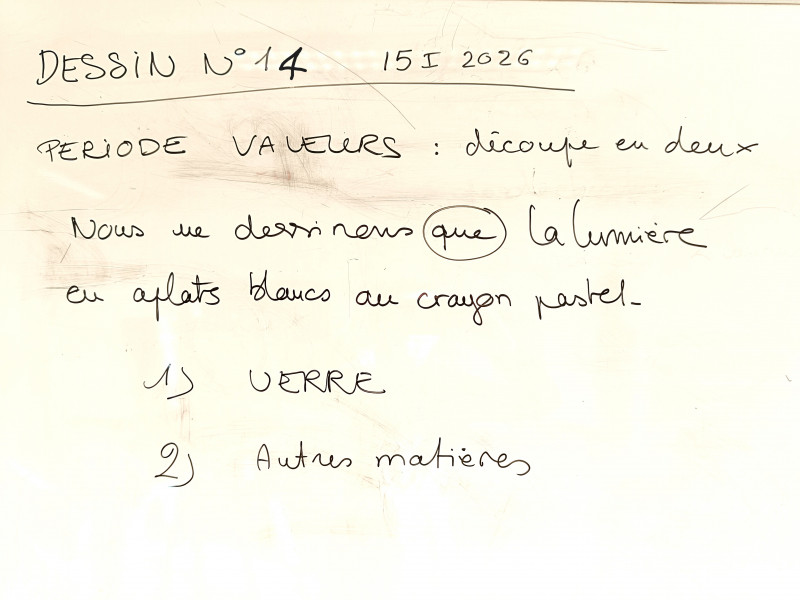 DESSIN N°14 15 I 2026
PERIODE VALEURS : découpe en deux
Nous ne dessinons que la lumière
en aplats blancs au crayon pastel-
1) VERRE
2) Autres matières